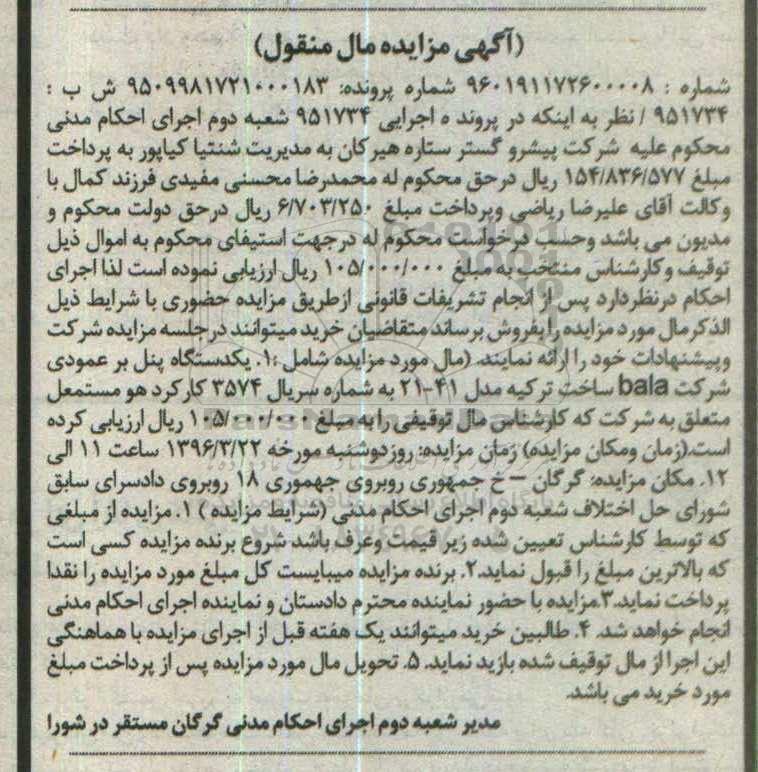 (آگهی مزایده مال منقول)
شماره : ۹۶۰۱۹۱۱۷۲۶۰۰۰۰۸ شماره پرونده: ۹۵۰۹۹۸۱۷۲۱۰۰۰۱۸۳ ش ب :
۹۵۱۷۳۴ / نظر به اینکه در پروند ه اجرایی ۹۵۱۷۳۴ شعبه دوم اجرای احکام مدنی
محکوم علیه شرکت پیشرو گستر ستاره هیرکان به مدیریت شنتیا کیاپور به پرداخت
مبلغ ۱۵۴/۸۳۶/۵۷۷ ریال درحق محکوم له محمدرضا محسنی مفیدی فرزند کمال با
وکالت آقای علیرضا ریاضی وپرداخت مبلغ ۶/۷۰۳/۲۵۰ ریال درحق دولت محکوم و
مدیون می باشد وحسب درخواست محکوم له درجهت استیفای محکوم به اموال ذیل
توقیف وکارشناس منتخب به مبلغ ۱۰۵/۰۰۰/۰۰۰ ریال ارزیابی نموده است لذا اجرای
احکام درنظردارد پس از انجام تشریفات قانونی ازطریق مزایده حضوری با شرایط ذیل
الذکرمال مورد مزایده رابفروش برساند متقاضیان خرید میتوانند درجلسه مزایده شرکت
وپیشنهادات خود را ارائه نمایند. (مال مورد مزایده شامل :۱. یکدستگاه پنل بر عمودی
شرکت bala ساخت ترکیه مدل ۴۱-۲۱ به شماره سریال ۳۵۷۴ کارکرد هو مستمعل
متعلق به شرکت که کارشناس مال توقیفی را به مبلغ ۱۰۵/۰۰۰/۰۰۰ ریال ارزیابی کرده
است.(زمان ومکان مزایده) زمان مزایده: روزدوشنبه مورخه ۱۳۹۶/۳/۲۲ ساعت ۱۱ الی
۱۲. مکان مزایده: گرگان – خ جمهوری روبروی جهموری ۱۸ روبروی دادسرای سابق
شورای حل اختلاف شعبه دوم اجرای احکام مدنی (شرایط مزایده ) ۱. مزایده از مبلغی
که توسط کارشناس تعیین شده زیر قیمت وعرف باشد شروع برنده مزایده کسی است
که بالاترین مبلغ را قبول نماید.۲. برنده مزایده میبایست کل مبلغ مورد مزایده را نقدا
پرداخت نماید.۳.مزایده با حضور نماینده محترم دادستان و نماینده اجرای احکام مدنی
انجام خواهد شد. ۴. طالبین خرید میتوانند یک هفته قبل از اجرای مزایده با هماهنگی
این اجرا از مال توقیف شده بازید نماید. ۵. تحویل مال مورد مزایده پس از پرداخت مبلغ
مورد خرید می باشد.
مدیر شعبه دوم اجرای احکام مدنی گرگان مستقر در شورا